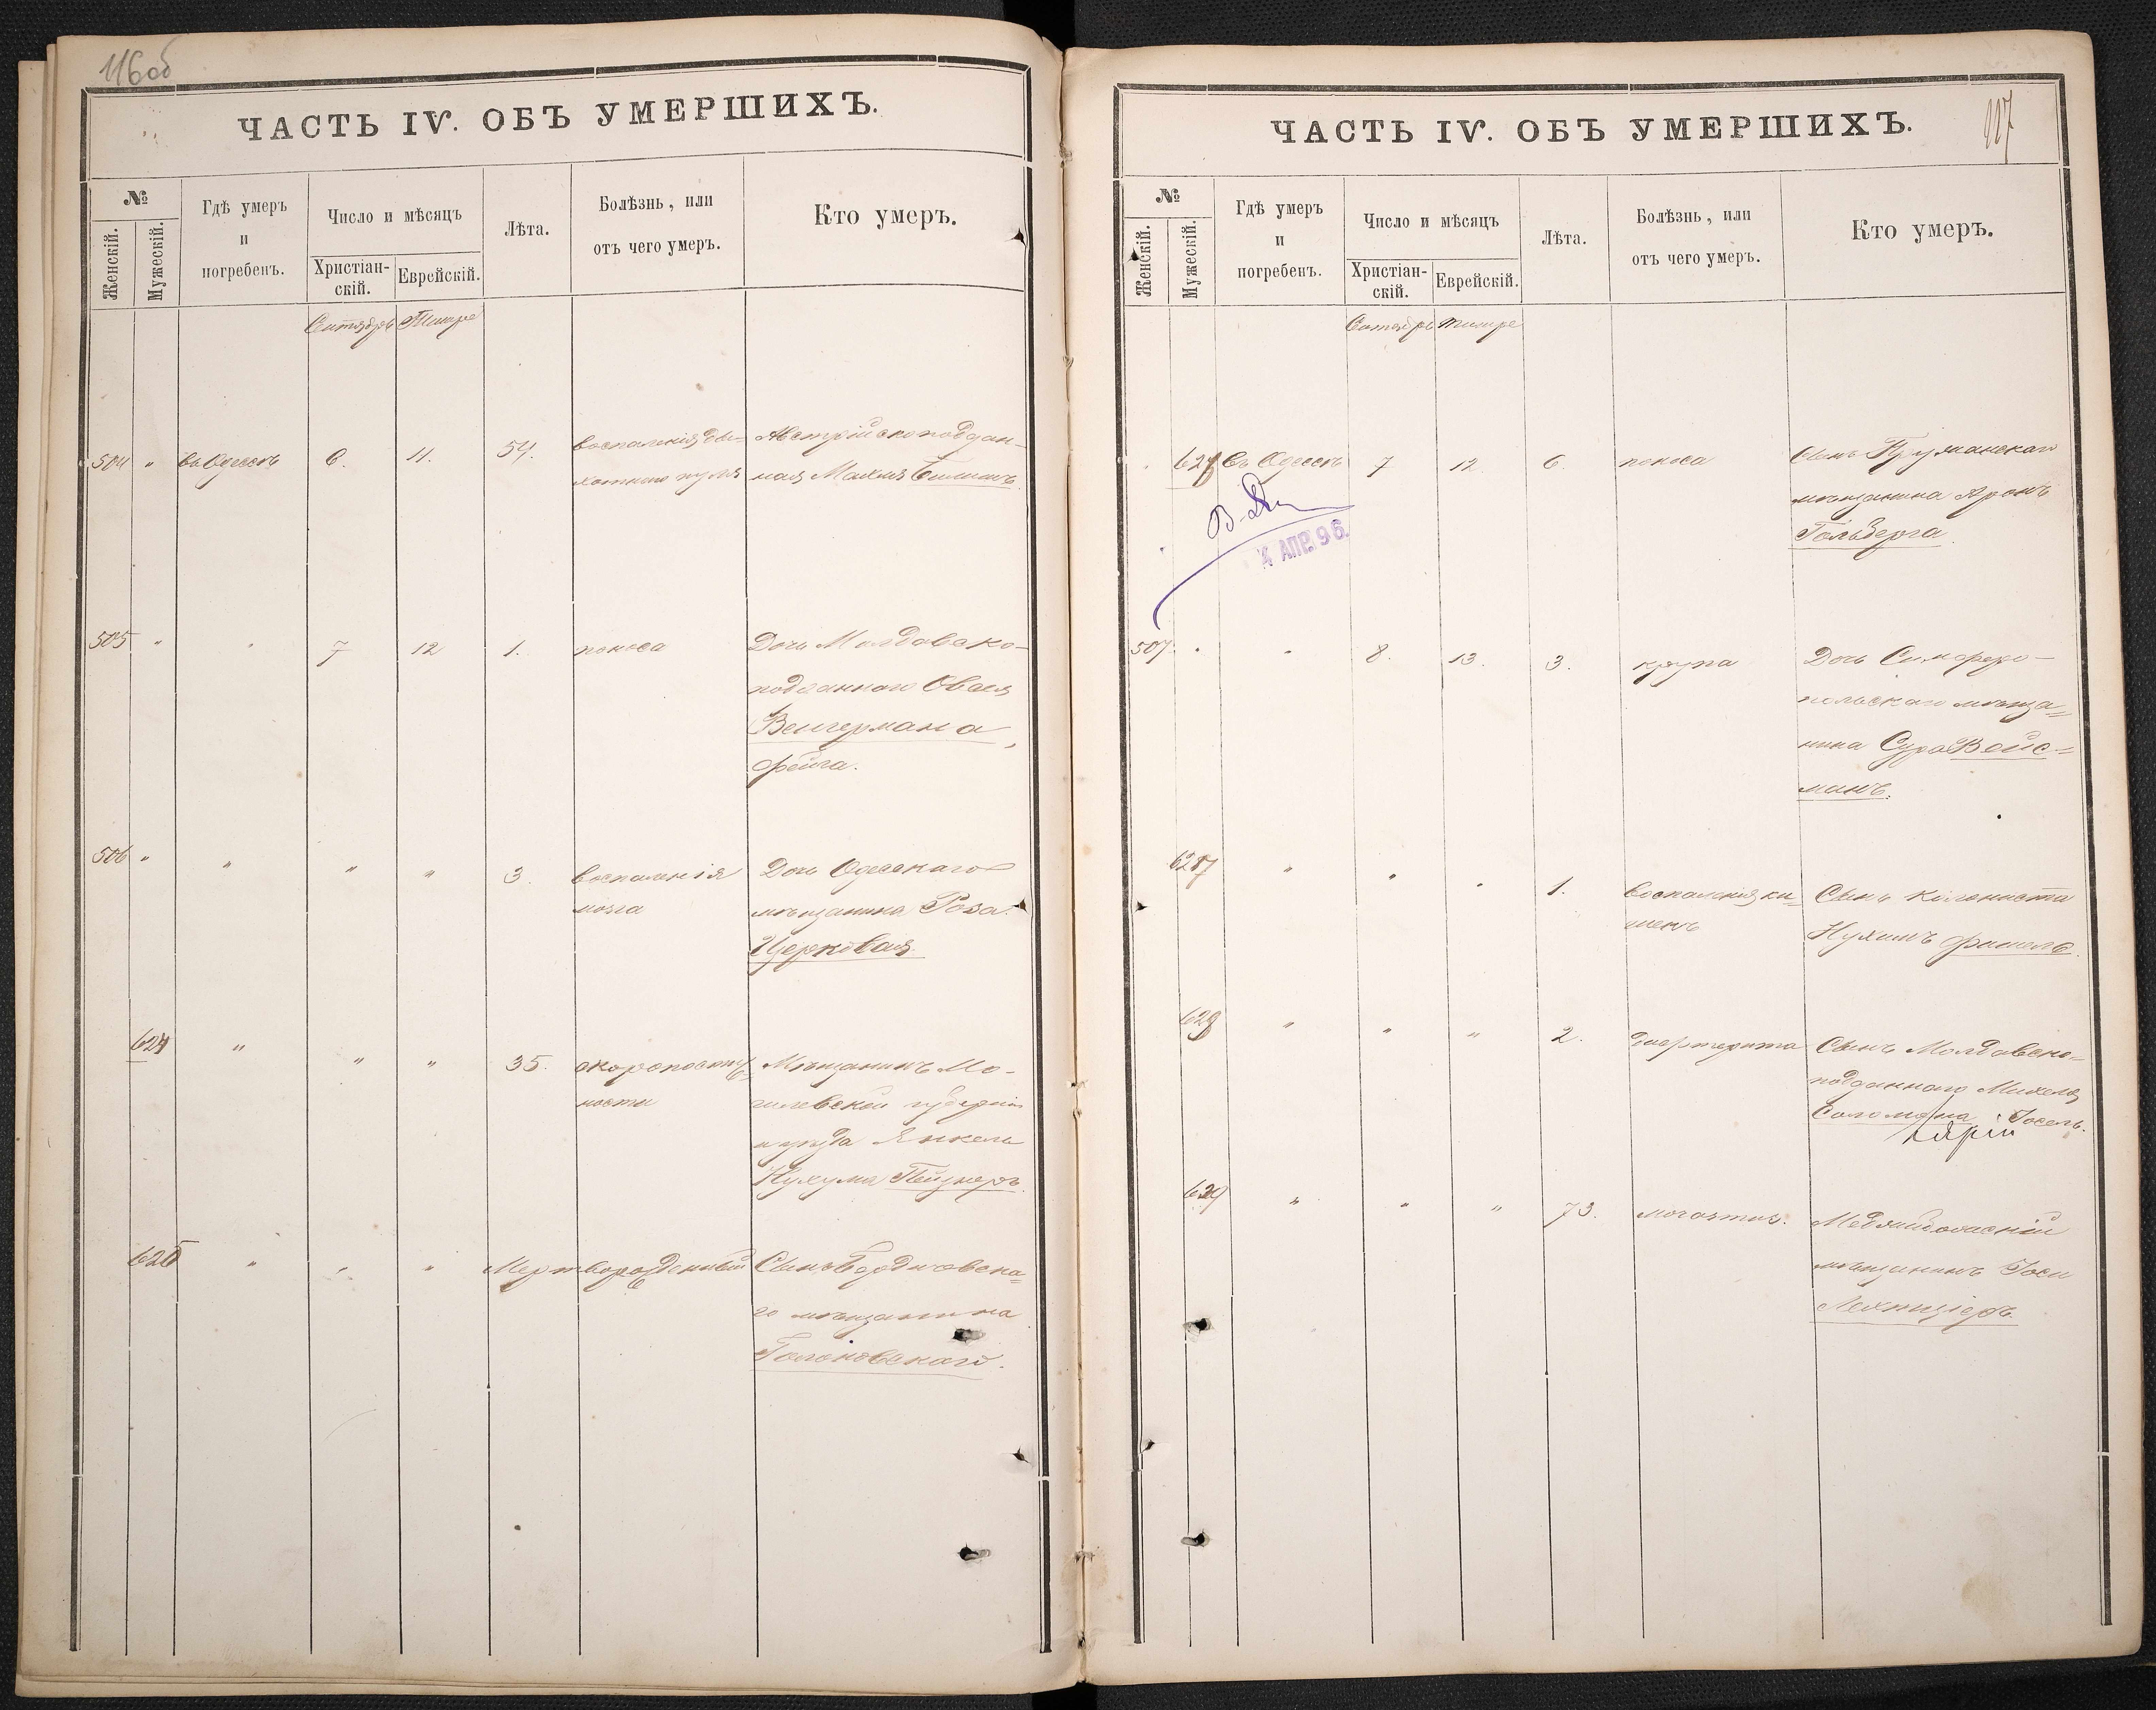 116об
ЧАСТЬ IV. ОБЪ УМЕРШИХЪ.
№
Женскій.
Мужескій.
Гдѣ умеръ
и
погребенъ.
Число и мѣсяцъ
Христіан-
скій.
Еврейскій.
Лѣта.
Болѣзнь, или
отъ чего умеръ.
Кто умеръ.
Сентябрь Тишре
504 " въ Одессѣ 6. 11. 54. воспаленія ды- Австрійскоподдан-
хательн ная Малия
505 " " 7 12 1. поноса Дочь Молдавско-
подданнаго Овсея
Венгермана,
Фейга.
506 " " " " 3. воспаленія Дочь Одесскаго
мозга мѣщанина Роза
Церковая
624 " " " 35. скоропостиж- Мѣщанинъ Мо-
ности гилевской губерніи
и уѣзда Янкель
Нухума Пейзнеръ.
625 " " " Мертворожденный Сынъ Бердичевска-
го мѣщанина
Гольновскаго.
117
ЧАСТЬ IV. ОБЪ УМЕРШИХЪ.
№
Женскій.
Мужескій.
Гдѣ умеръ
и
погребенъ.
Число и мѣсяцъ
Христіан-
скій.
Еврейскій.
Лѣта.
Болѣзнь, или
отъ чего умеръ.
Кто умеръ.
Сентябрь Тишре
въ Одессѣ 7 12. 6. поноса Сынъ Пружанскаго
мѣщанина Аронъ
Гольберга.
4 АПР. 96.
507. " " 8. 13. 3. крупа Дочь Симферо-
польскаго мѣща-
нина Сура Вейс-
манъ.
627 " " " 1. воспаленія ки- Сынъ колониста
шекъ Нухимъ Фишель.
628 " " " 2. дифтерита Сынъ Молдавско-
подданнаго Михеля
Соломона Іосель.
629 " " " 73. старости. Меджибожскій
мѣщанинъ Іось
Лехницеръ.